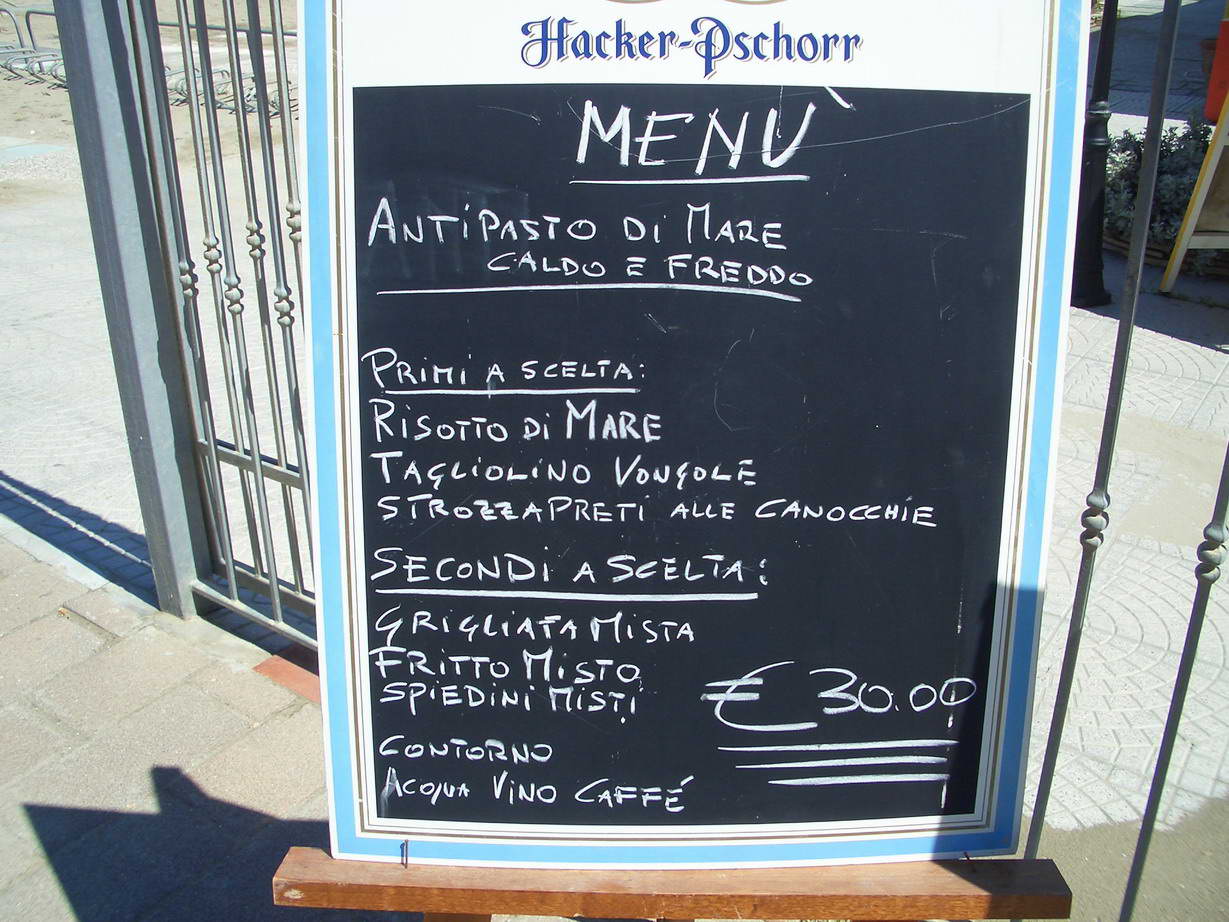 Hacker-Pschorr
MENÙ
ANTIPASTO DI MARE
CALDO E FREDDO
PRIMI A SCELTA:
RISOTTO DI MARE
TAGLIOLINO VONGOLE
STROZZAPRETI ALLE CANOCCHIE
SECONDI A SCELTA:
GRIGLIATA MISTA
FRITTO MISTO
SPIEDINI MISTI
€ 30.00
CONTORNO
ACQUA VINO CAFFÉ